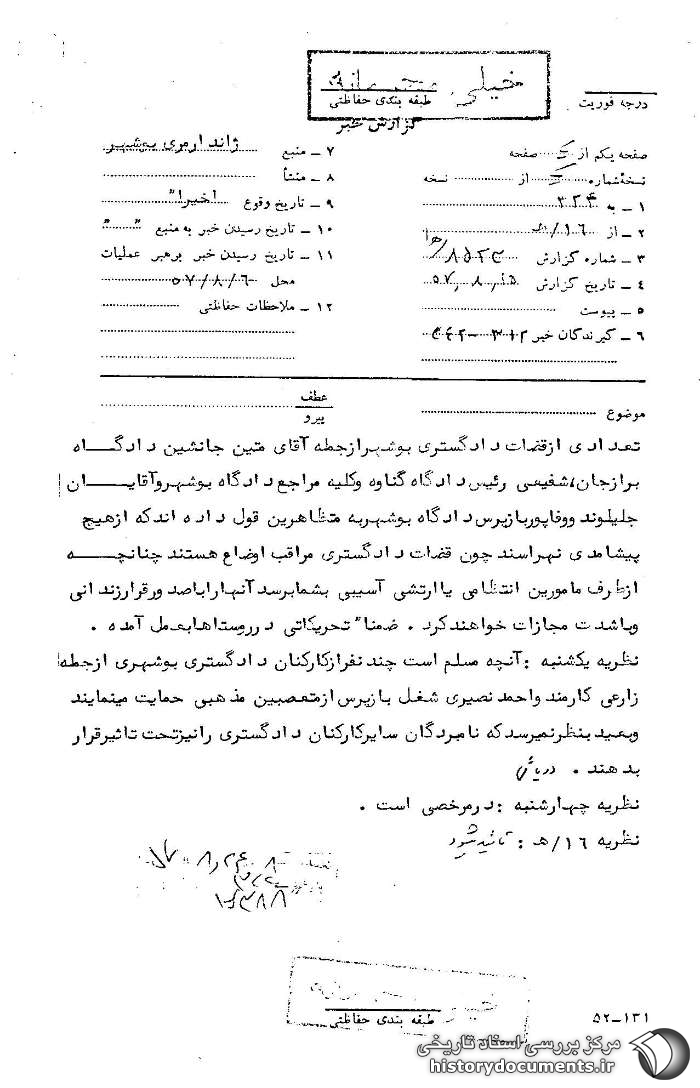 خیلی محرمانه
درجه فوریت
طبقه بندی حفاظتی
گزارش خبر
صفحه یکم از صفحه
نسخه شماره از نسخه
۱ ـ به ۳۲۴
۲ ـ از ۱۶/ه
۳ ـ شماره گزارش
۴ ـ تاریخ گزارش ۵۷٫۸٫۱۵
۵ ـ پیوست
۶ ـ گیرندگان خبر ۳۱۲
۷ ـ منبع ژاندارمری بوشهر
۸ ـ منشأ
۹ ـ تاریخ وقوع اخیرا"
۱۰ ـ تاریخ رسیدن خبر به منبع " "
۱۱ ـ تاریخ رسیدن خبر برهبر عملیات
محل ۵۷/۸/۶
۱۲ ـ ملاحظات حفاظتی
موضوع
عطف
پیرو
تعدادی ازقضات دادگستری بوشهرازجمله آقای متین جانشین دادگاه
برازجان،شفیعی رئیس دادگاه گناوه وکلیه مراجع دادگاه بوشهروآقایان
جلیلوند ووفاپوربازپرس دادگاه بوشهربه متظاهرین قول داده اندکه ازهیچ
پیشامدی نهراسند چون قضات دادگستری مراقب اوضاع هستند چنانچه
ازطرف مامورین انتظامی یاارتشی آسیبی بشمابرسدآنهاراباصدورقرارزندانی
وباشدت مجازات خواهندکرد . ضمنا" تحریکاتی درروستاهابعمل آمده .
نظریه یکشنبه : آنچه مسلم است چندنفرازکارکنان دادگستری بوشهری ازجمله
زارعی کارمند واحمدنصیری شغل بازپرس ازمتعصبین مذهبی حمایت مینمایند
وبعیدبنظرنمیرسدکه نامبردگان سایرکارکنان دادگستری رانیزتحت تاثیرقرار
بدهند . دریائی
نظریه چهارشنبه : درمرخصی است .
نظریه ۱۶/ه : تائید شود
خیلی
طبقه بندی حفاظتی
۵۲ـ۱۳۱
مرکز بررسی اسناد تاریخی
historydocuments.ir